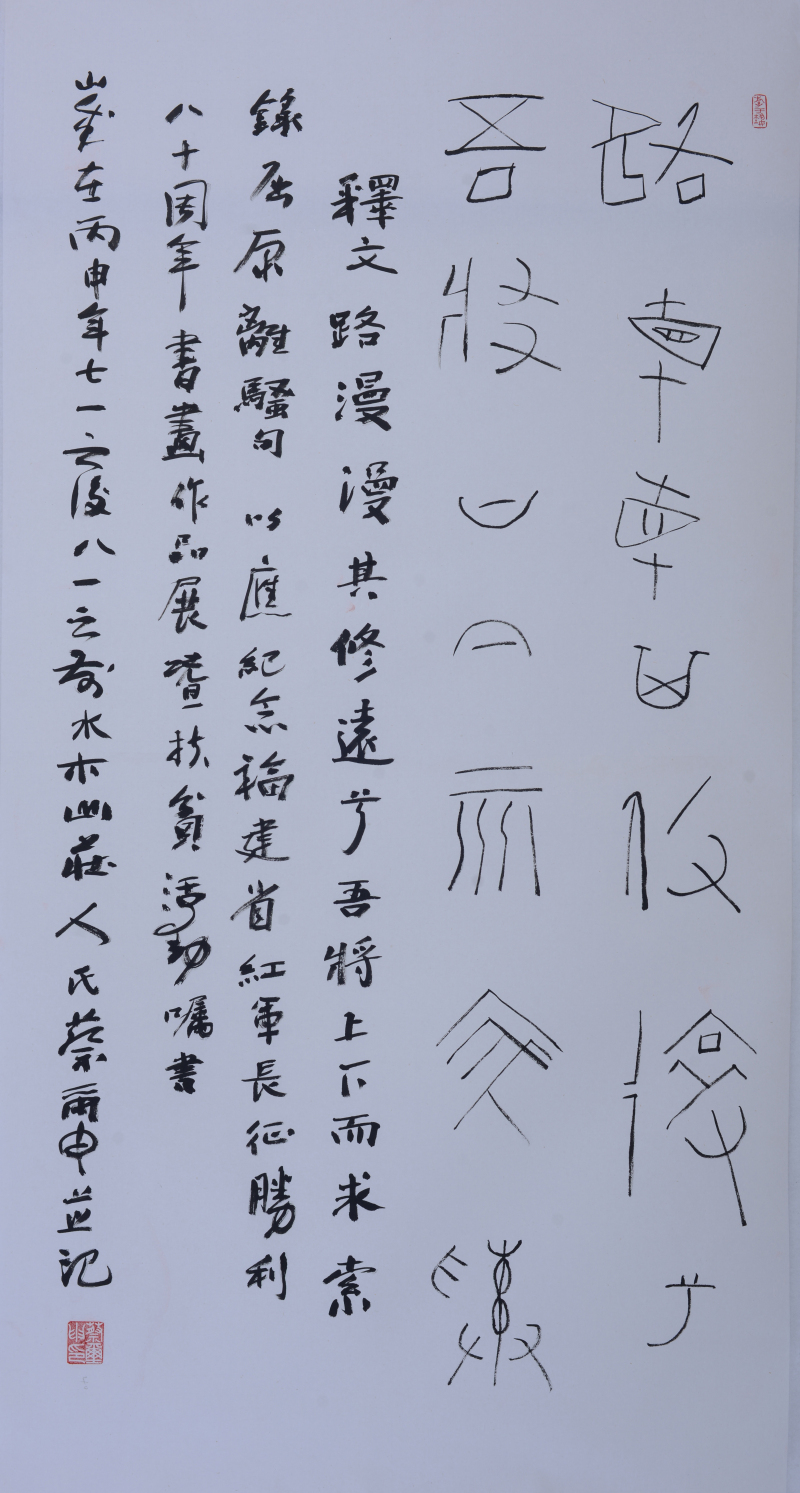 路曼曼其攸遠兮
吾將上下而求索
釋文路漫漫其修遠兮吾將上下而求索
錄屈原離騷句 以應紀念福建省紅軍長征勝利
八十周年書畫作品展暨扶貧活動囑書
歲在丙申年七一之後八一之前水木山莊人氏蔡爾申並記
蔡爾申印